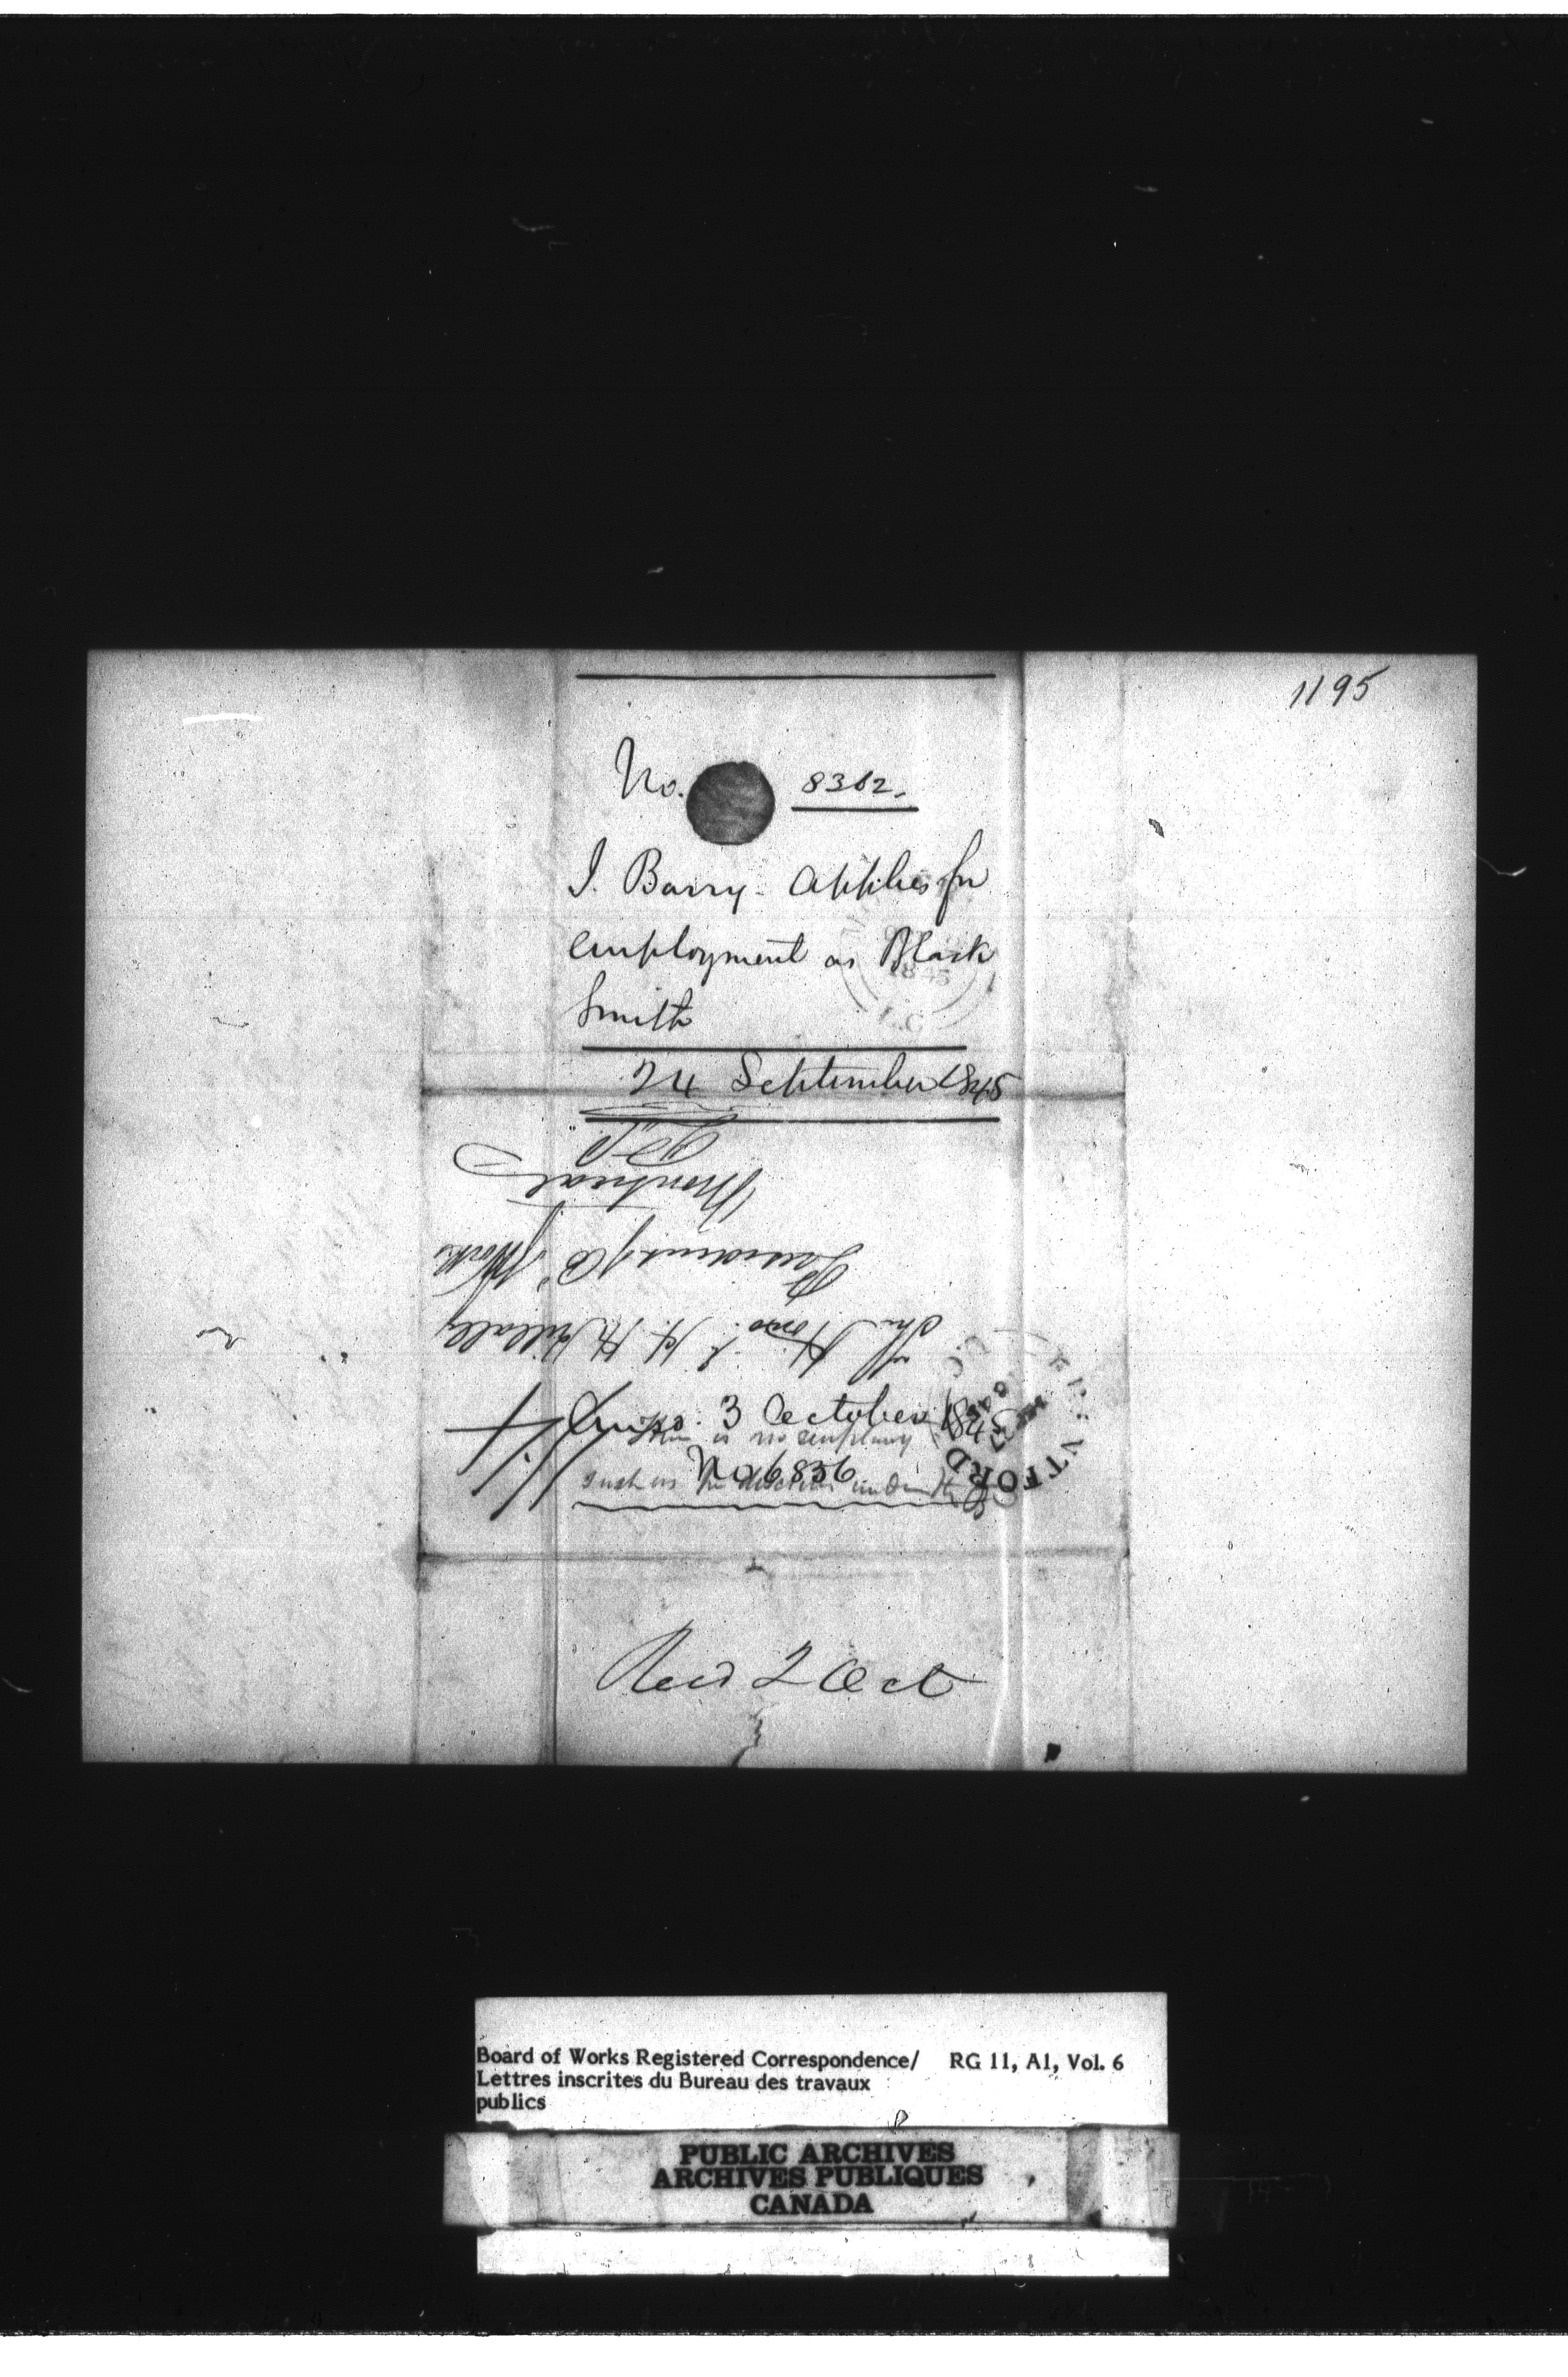 1195
No. 8362.
J. Barry - applies for
employment as Black
Smith
24 September 1845
Montreal
of Works
The Honble H. H. Killaly
Ansd. 3 October 1845
There is no
such as he under the
No 6836
1/4
BRANTFORD
1845
Recd 2 Oct
Board of Works Registered Correspondence/ RG 11, A1, Vol. 6
Lettres inscrites du Bureau des travaux
publics
PUBLIC ARCHIVES
ARCHIVES PUBLIQUES
CANADA